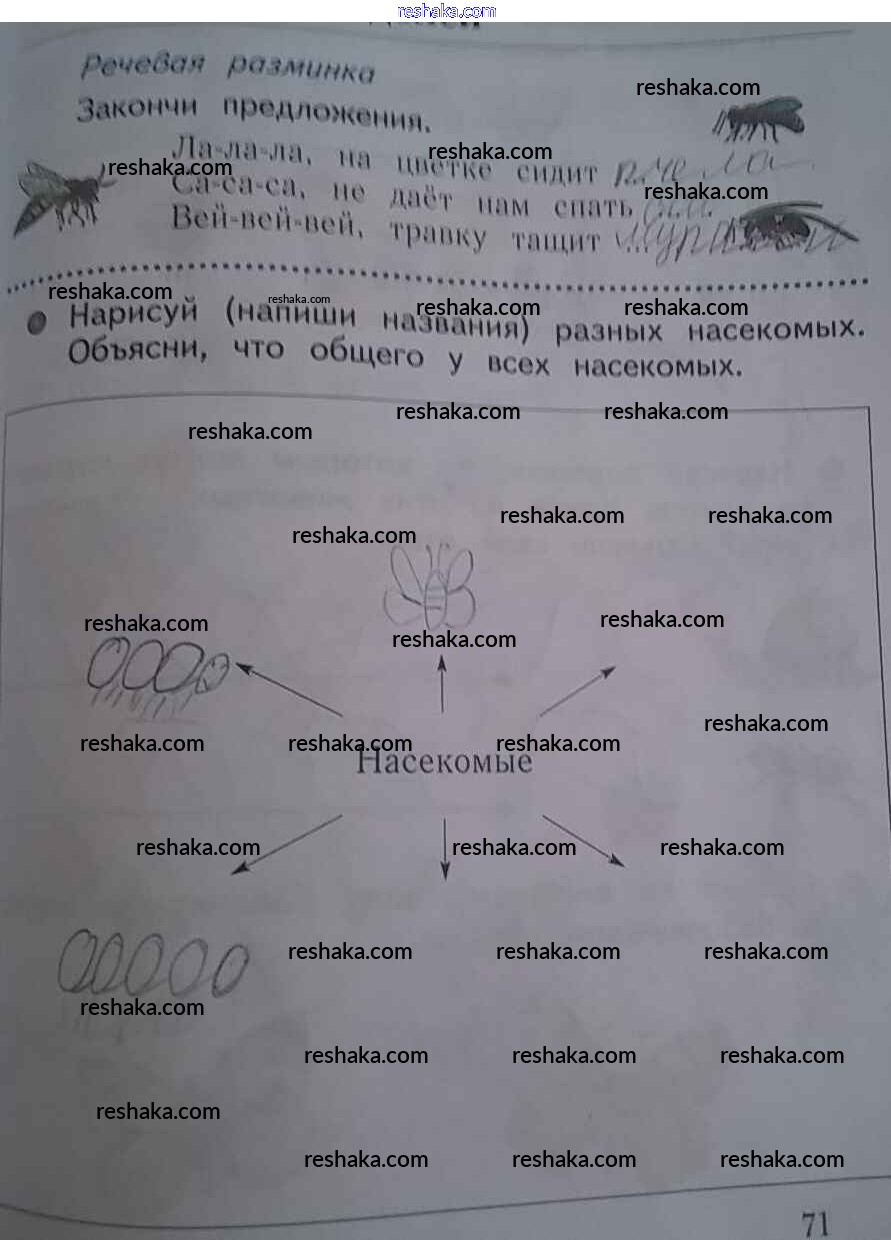 reshaka.com
Речевая разминка
reshaka.com
Закончи предложения.
Ла-ла-ла, на цветке сидит пчела
reshaka.com reshaka.com
Са-са-са, не даёт нам спать
reshaka.com
Вей-вей-вей, травку тащит ...
reshaka.com reshaka.com reshaka.com reshaka.com
Нарисуй (напиши названия) разных насекомых.
Объясни, что общего у всех насекомых.
reshaka.com reshaka.com reshaka.com
reshaka.com reshaka.com reshaka.com
reshaka.com reshaka.com reshaka.com
reshaka.com
reshaka.com reshaka.com reshaka.com
Насекомые
reshaka.com reshaka.com reshaka.com
reshaka.com reshaka.com reshaka.com
reshaka.com
reshaka.com reshaka.com reshaka.com
reshaka.com
reshaka.com reshaka.com reshaka.com
71